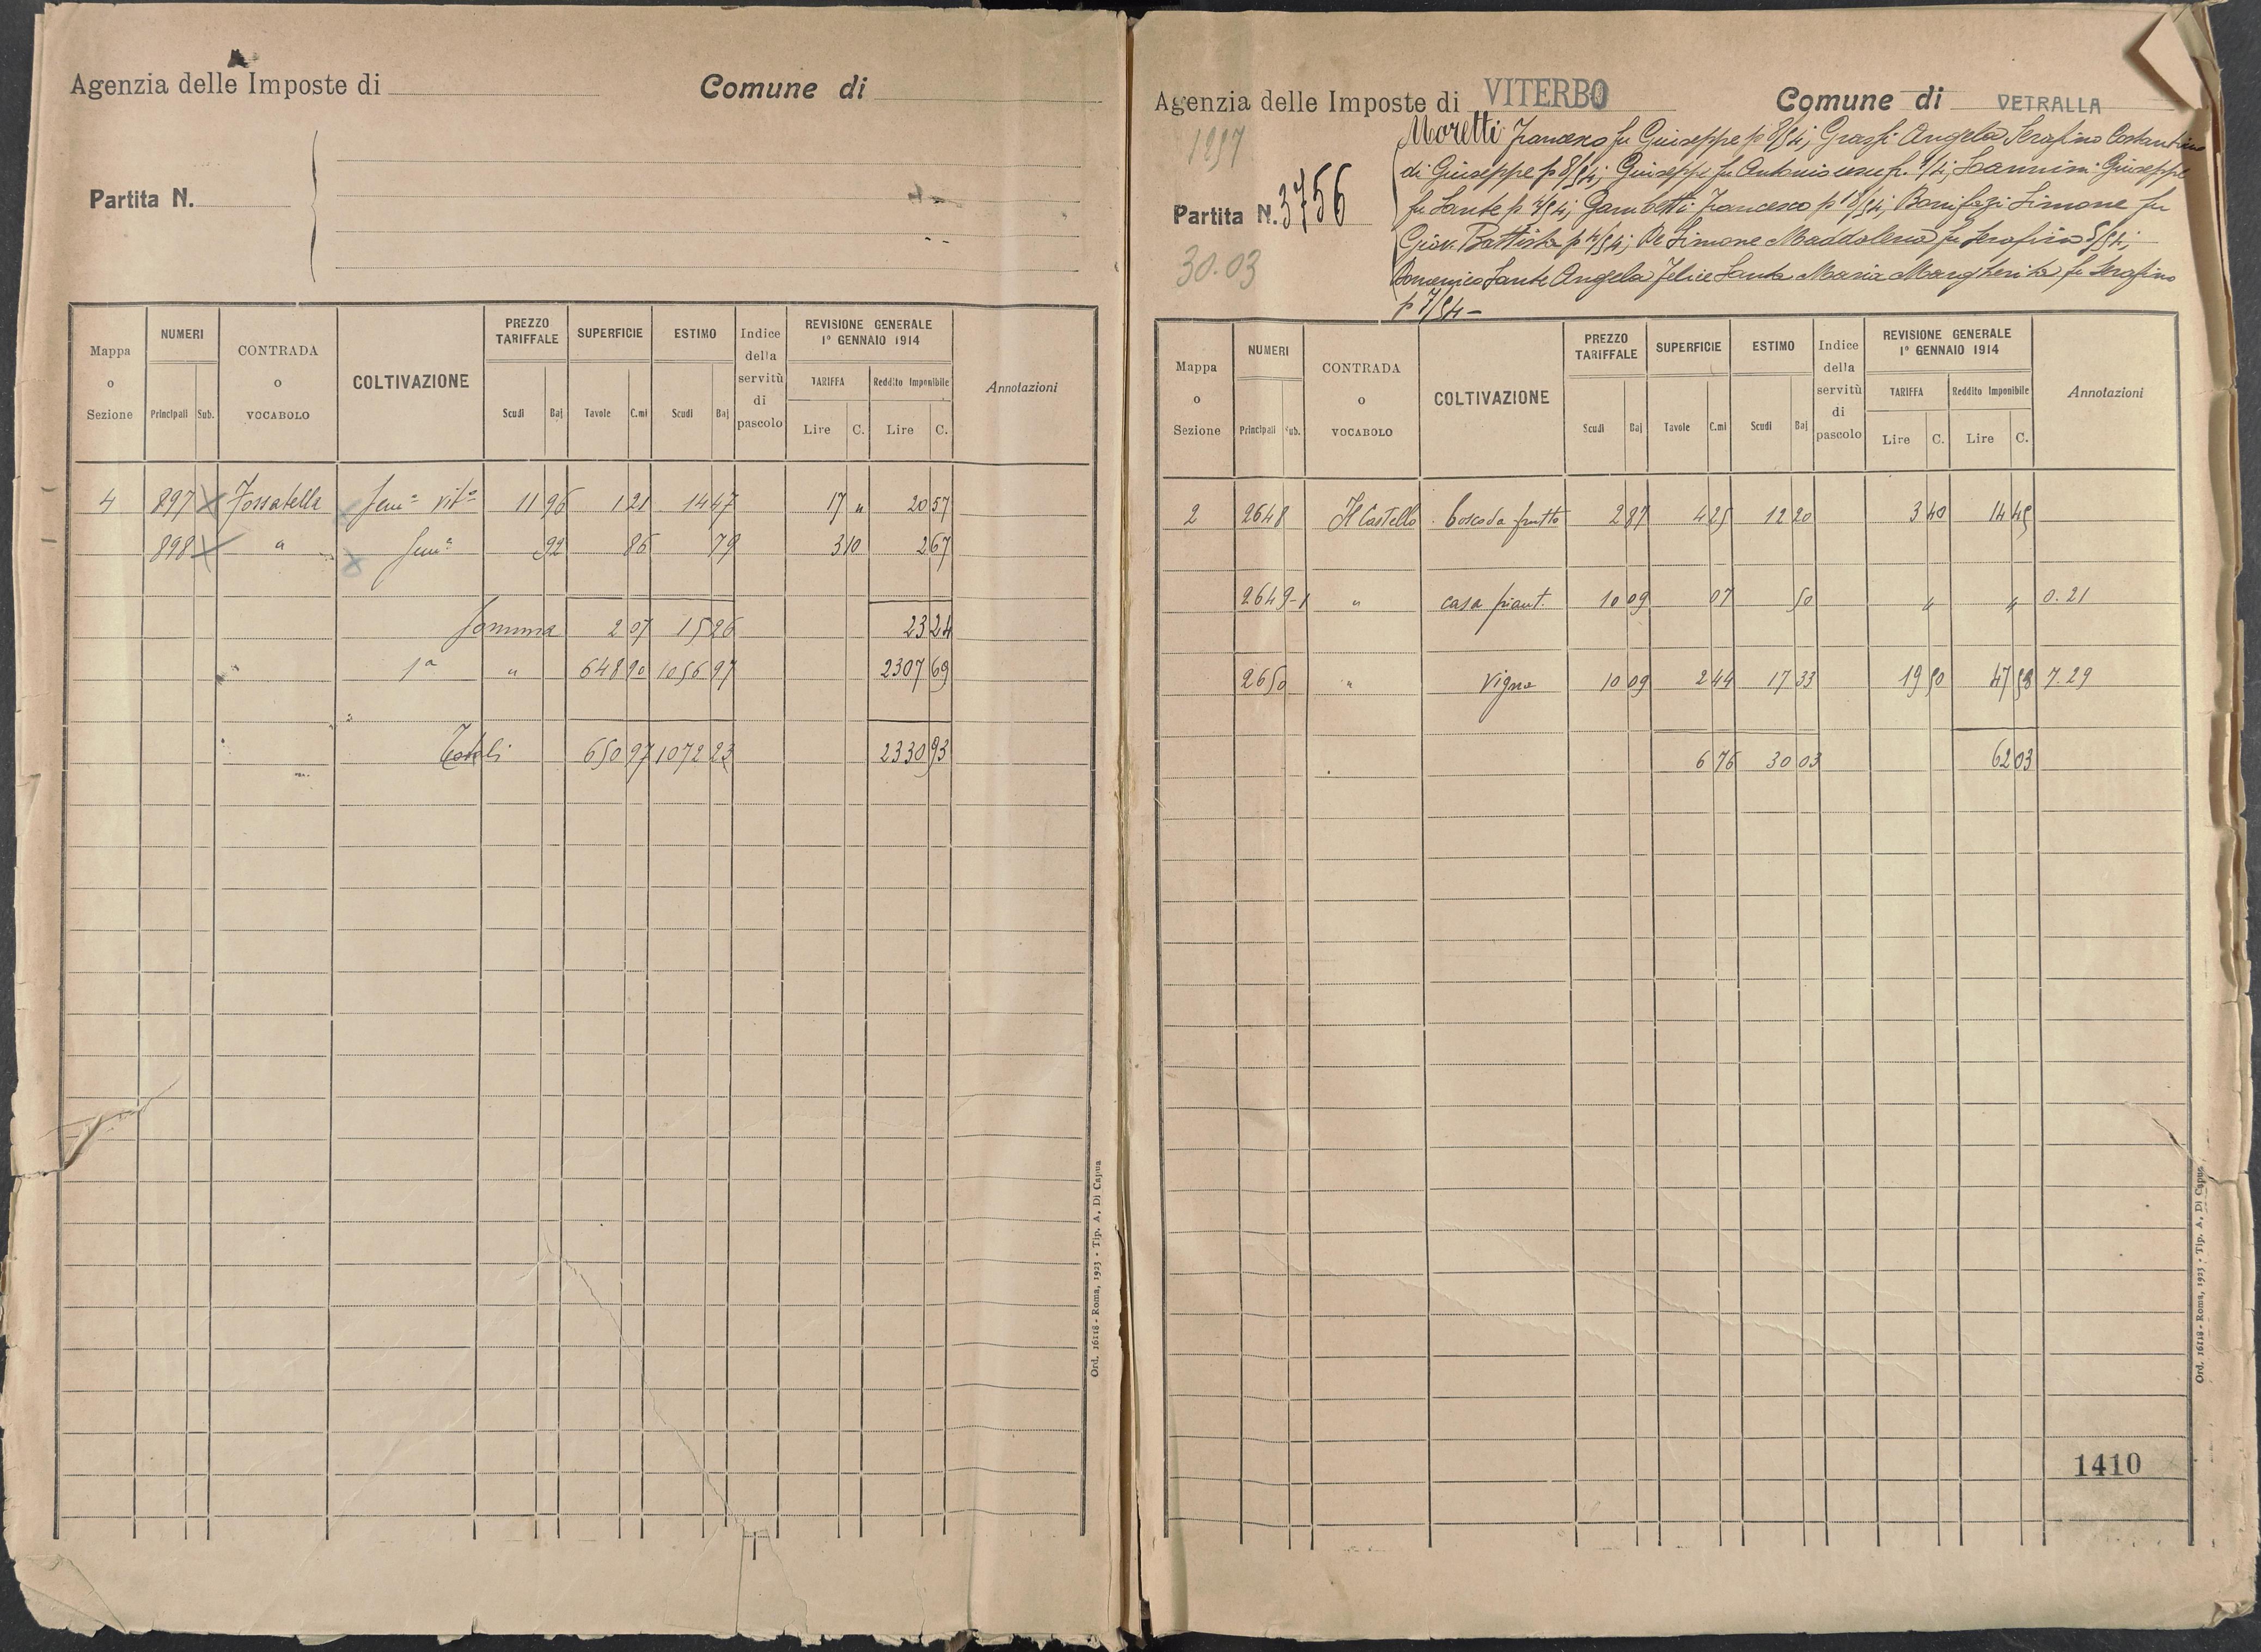 Agenzia delle Imposte di
Comune di
Partita N.
Mappa o Sezione
NUMERI
Principali Sub.
CONTRADA o VOCABOLO
COLTIVAZIONE
PREZZO TARIFFALE
Scudi Baj
SUPERFICIE
Tavole C.mi
ESTIMO
Scudi Baj
Indice della servitù di pascolo
REVISIONE GENERALE
1° GENNAIO 1914
TARIFFA
Lire C.
Reddito Imponibile
Lire C.
Annotazioni
4 897 Fossatella Sem° vit° 11 96 1 21 14 47 17 " 20 57
898 " Sem° 92 86 79 3 10 2 67
Somma 2 07 15 26 23 24
1a " 648 90 1056 97 2307 69
Totali 650 97 1072 23 2330 93
Ord. 16118 - Roma, 1923 - Tip. A. Di Capua
Agenzia delle Imposte di VITERBO
Comune di VETRALLA
1297
Partita N. 3756
30.03
Moretti Francesco fu Giuseppe p 8/54; Grassi Angela Serafino Costantino
di Giuseppe p 8/54; Giuseppe fu Antonio p. Giuseppe
fu Sante p Gambetti Francesco p 18/54; Bonifazi Simone fu
Giov. Battista p 4/54; De Simone Maddalena fu Serafino 5/54;
Domenico Sante Angela Felice Santa Maria Margherita fu Serafino
p 7/54 -
Mappa o Sezione
NUMERI
Principali Sub.
CONTRADA o VOCABOLO
COLTIVAZIONE
PREZZO TARIFFALE
Scudi Baj
SUPERFICIE
Tavole C.mi
ESTIMO
Scudi Baj
Indice della servitù di pascolo
REVISIONE GENERALE
1° GENNAIO 1914
TARIFFA
Lire C.
Reddito Imponibile
Lire C.
Annotazioni
2 2648 Il Castello bosco da frutto 2 87 4 25 12 20 3 40 14 45
2649-1 " casa piant. 10 09 07 50 " " 0.21
2650 " Vigna 10 09 2 44 17 33 19 50 47 58 7.29
6 76 30 03 62 03
1410
Ord. 16118 - Roma, 1923 - Tip. A. Di Capua